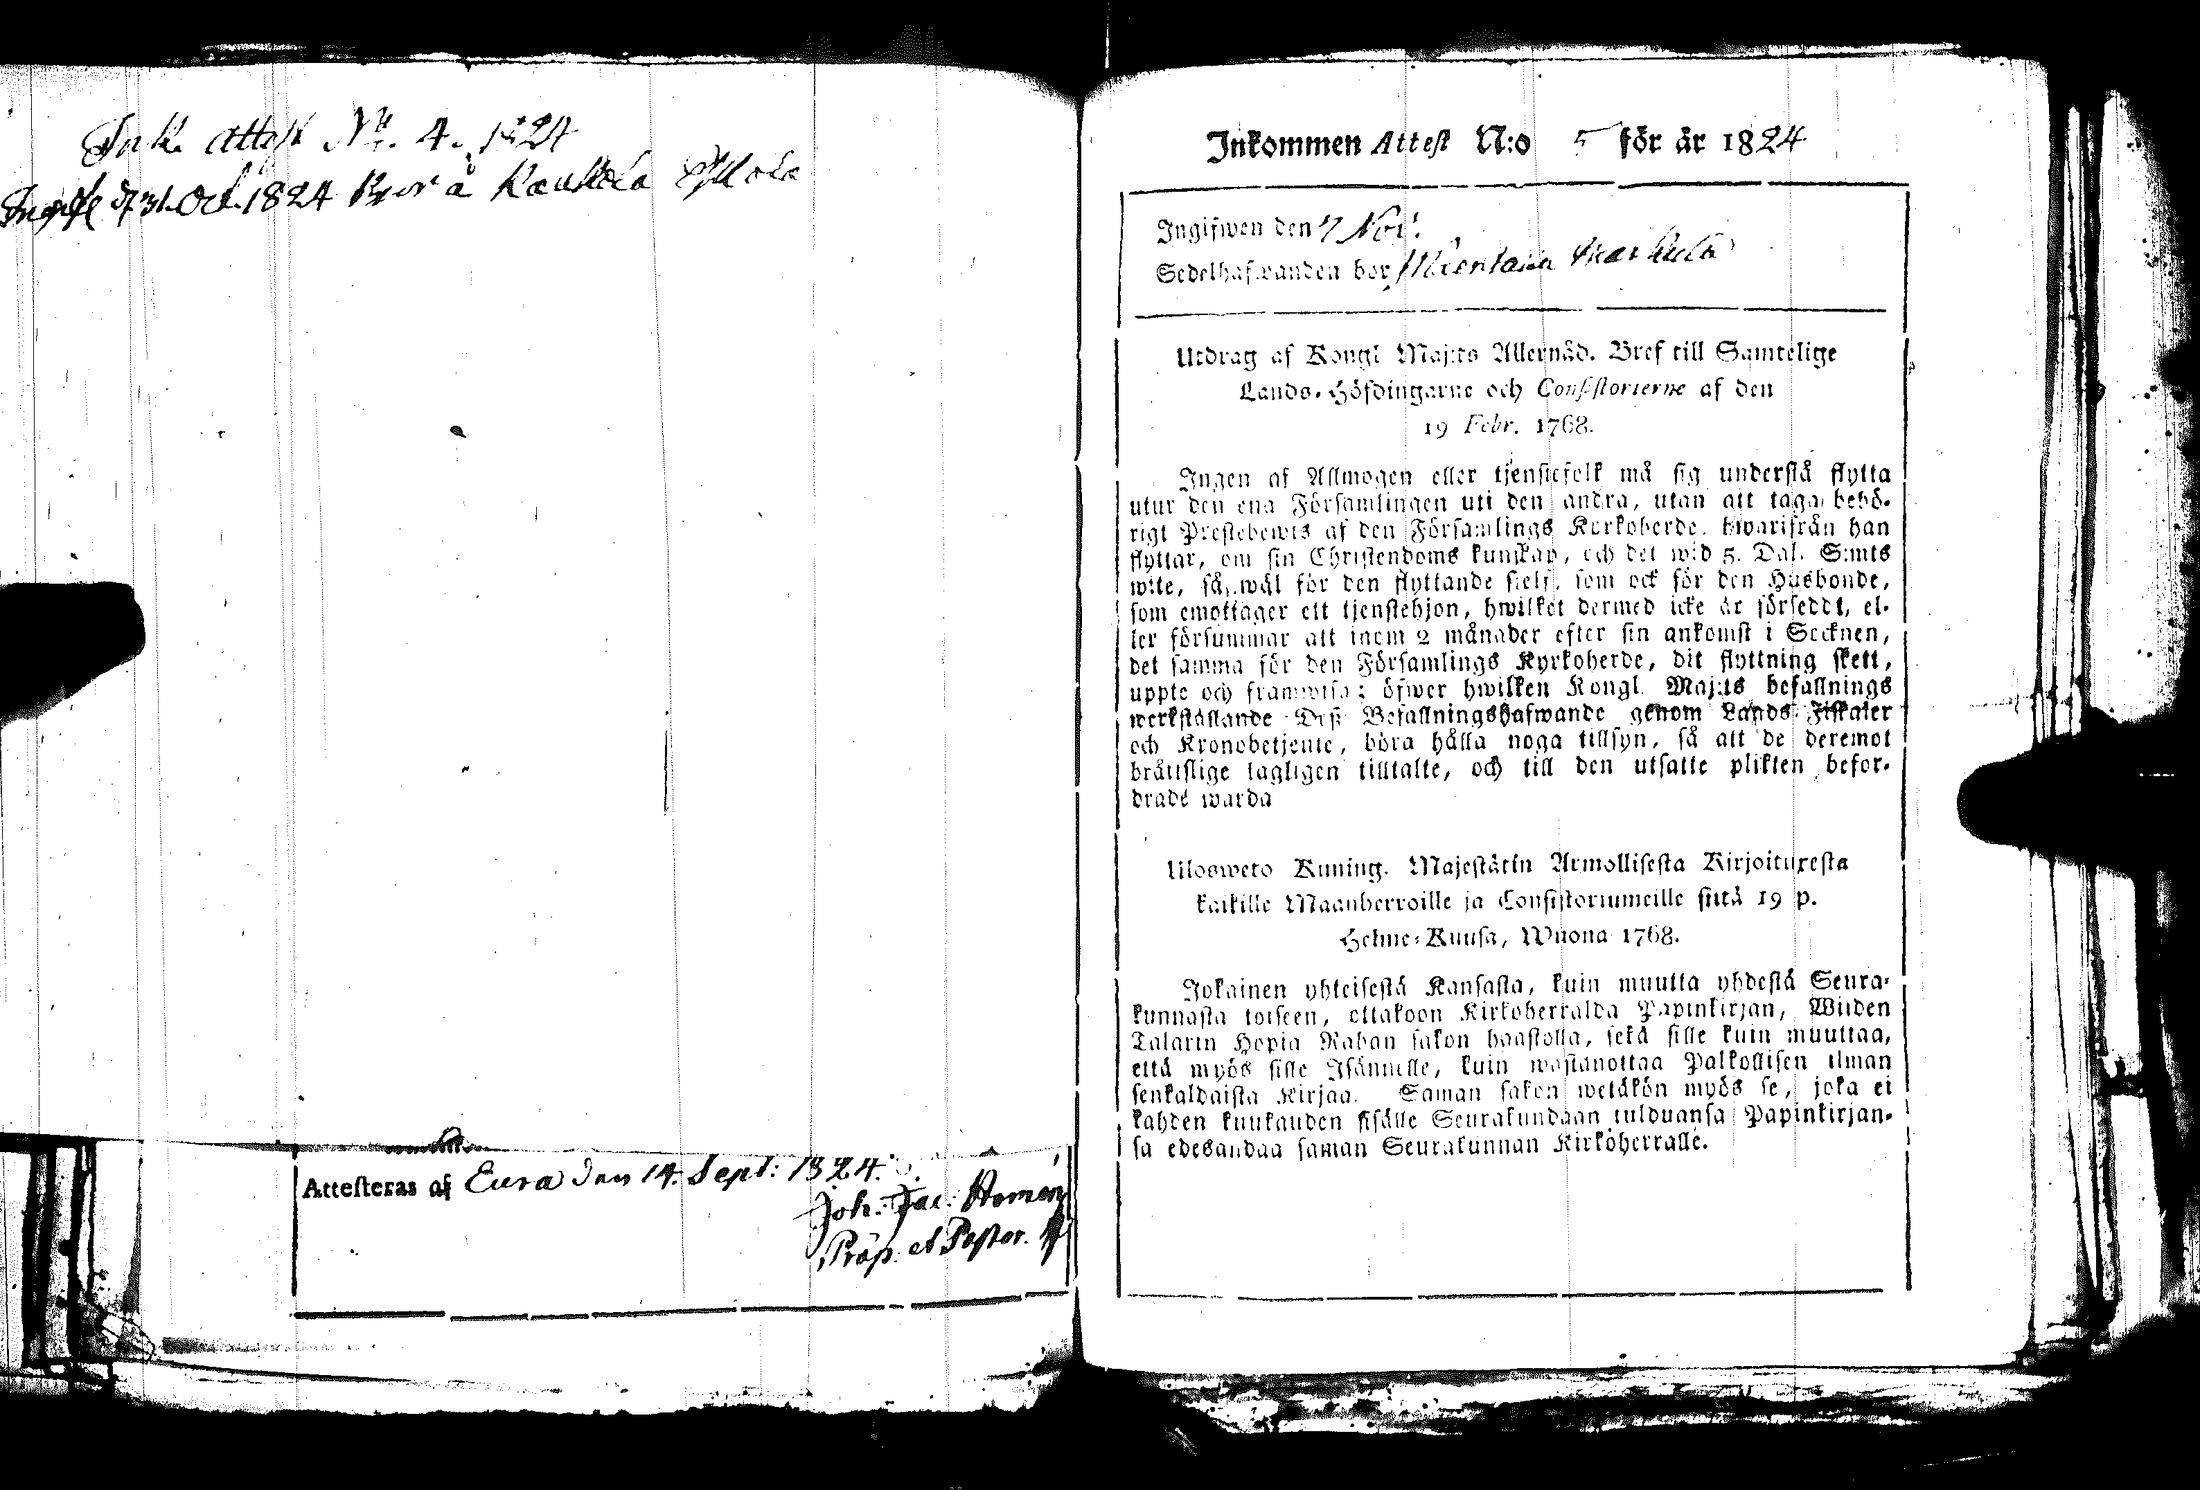 Ink. attest No. 4. 1824
Ingifv. d. 31. Oct. 1824 Bor å Kaukola
Attesteras af Eura den 14. Sept: 1824.
Joh. Jac.
Präp. et Pastor.
Inkommen Attest N:o 5 för år 1824
Ingifwen den 7 Nov.
Sedelhafwanden bor
Utdrag af Kongl Maj:ts Allernåd. Bref till Samtelige
Lands-Höfdingarne och Consistorierne af den
19 Febr. 1768.
Ingen af Allmogen eller tjenstefolk må sig understå flytta
utur den ena Församlingen uti den andra, utan att taga behö-
rigt Prestebewis af den Församlings Kyrkoherde, hwarifrån han
flyttar, om sin Christendoms kunskap, och det wid 5. Dal. S:mts
wite, så wäl för den flyttande sielf, som ock för den Husbonde,
som emottager ett tjenstehjon, hwilket dermed icke är försedt, el-
ler försummar att inom 2 månader efter sin ankomst i Socknen,
det samma för den Församlings Kyrkoherde, dit flyttning skett,
uppte och framwisa; öfwer hwilken Kongl. Maj:ts befallnings
werkställande Dess Befallningshafwande genom Lands Fiskaler
och Kronobetjente, böra hålla noga tillsyn, så att de deremot
bråttslige lagligen tilltalte, och till den utsatte plikten befor-
drade warda
Ulosweto Kuning. Majestätin Armollisesta Kirjoituxesta
kaikille Maanherroille ja Consistoriumeille siitä 19 p.
Helme-Kuusa, Wuona 1768.
Jokainen yhteisestä Kansasta, kuin muutta yhdestä Seura-
kunnasta toiseen, ottakoon Kirkoherralda Papinkirjan, Wiiden
Talarin Hopia Rahan sakon haastolla, sekä sille kuin muuttaa,
että myös sille Isännelle, kuin wastanottaa Palkollisen ilman
senkaldaista Kirjaa. Saman sakon wetäkön myös se, joka ei
kahden kuukauden sisälle Seurakundaan tulduansa Papinkirjan-
sa edesandaa saman Seurakunnan Kirkoherralle.